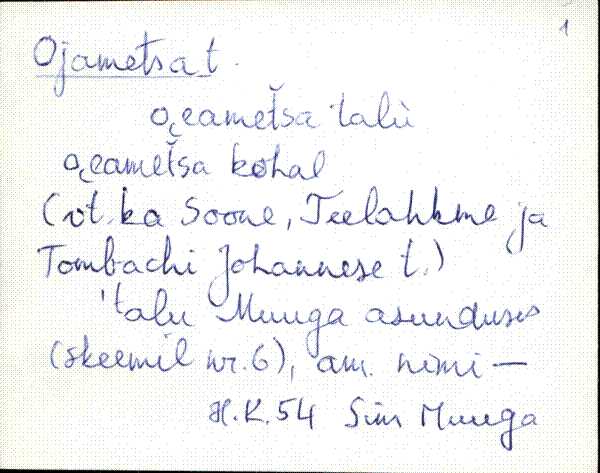 1
Ojametsa t.
o̭eametša 'talù
o̭eametša kohal
(vt. ka Soone, Teelahkme ja
Tombachi Johannese t.)
'talu Muuga asunduses
(skeemil nr. 6), am. nimi —
H.K. 54 Sim Muuga